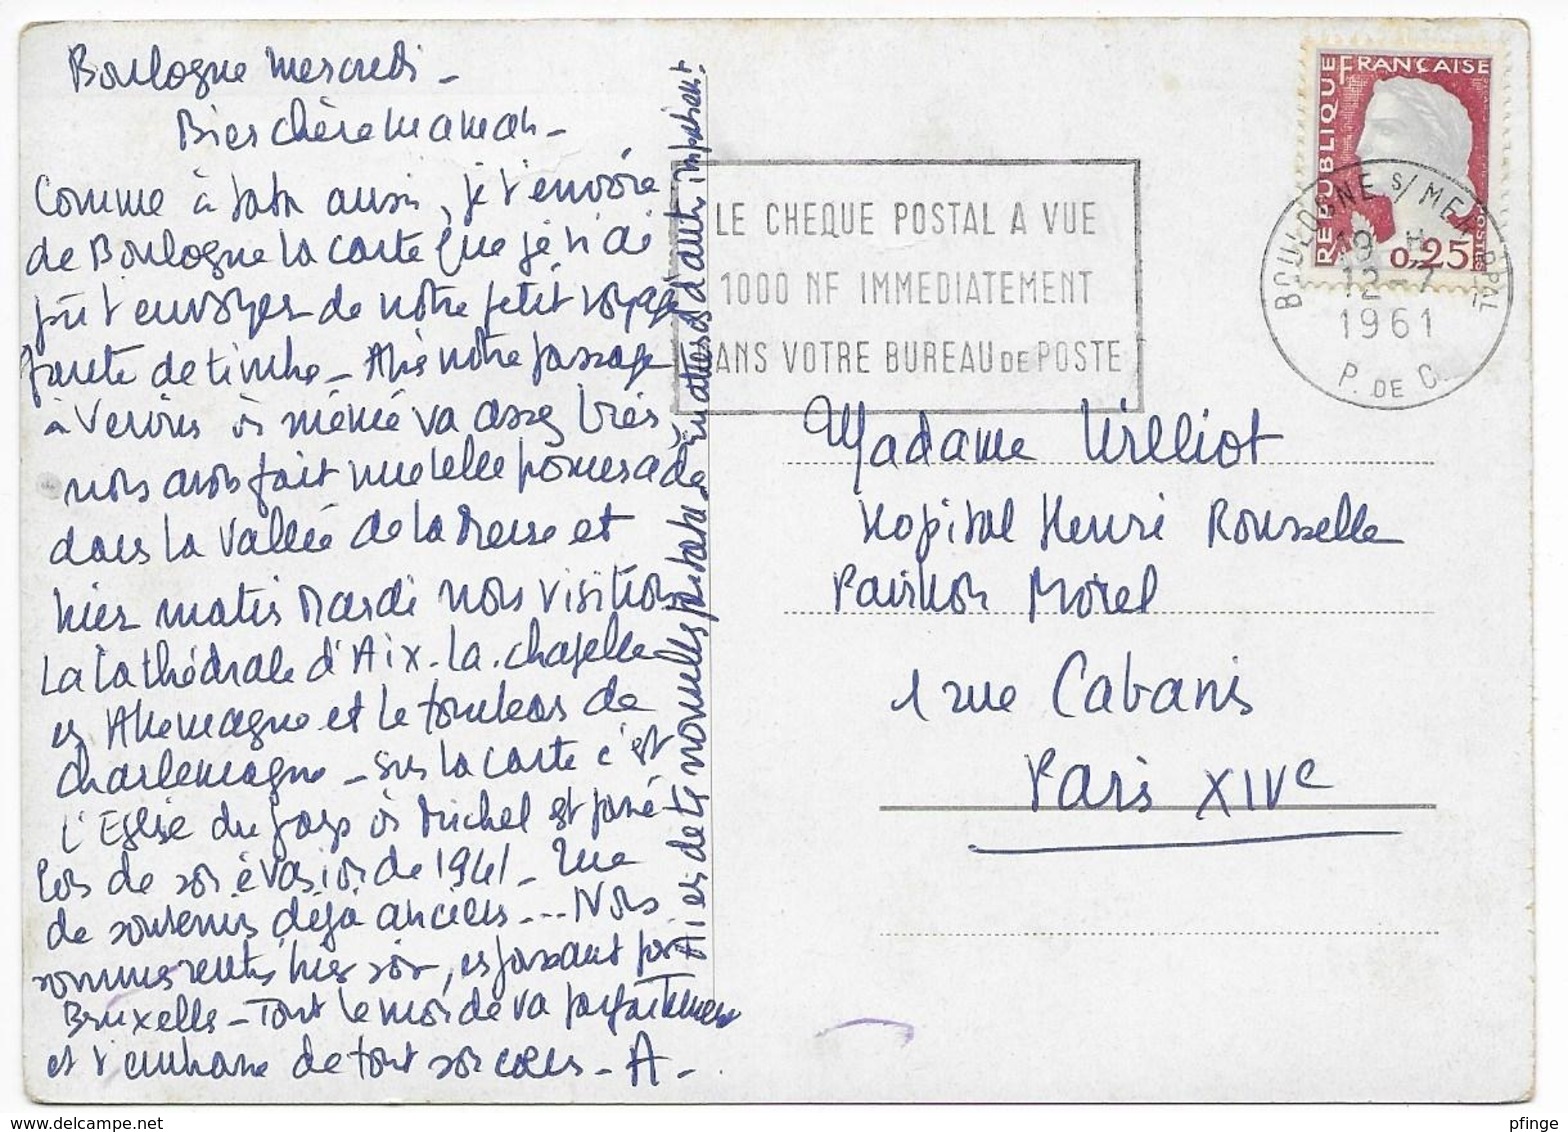 Boulogne mercredi -
Bien chère maman -
Comme à papa aussi, je t'envoie
de Boulogne la carte que je n'ai
pu t'envoyer de notre petit voyage
faute de timbre - Après notre passage
à Verviers où mémé va assez bien,
nous avons fait une belle promenade
dans la vallée de la Meuse et
hier matin mardi nous visitions
la Cathédrale d'Aix-la-chapelle
en Allemagne et le tombeau de
Charlemagne - Sur la carte c'est
l'Eglise du pays où Michel est passé
lors de son évasion de 1941 - Que
de souvenirs déjà anciens ... Nous
sommes rentrés hier soir, en passant par
Bruxelles - Tout le monde va parfaitement
et t'embrasse de tout son cœur - A -
Ai eu de tes nouvelles par papa, en attends d'autres impatient.
LE CHEQUE POSTAL A VUE
1000 NF IMMEDIATEMENT
ANS VOTRE BUREAU DE POSTE
REPUBLIQUE FRANÇAISE
0,25
BOULOGNE S/ MER PPAL
19 H
12-7
1961
P. DE C.
Madame Williot
Hopital Henri Rousselle
Pavillon Morel
1 rue Cabanis
Paris XIVe
www.delcampe.net
pfinge